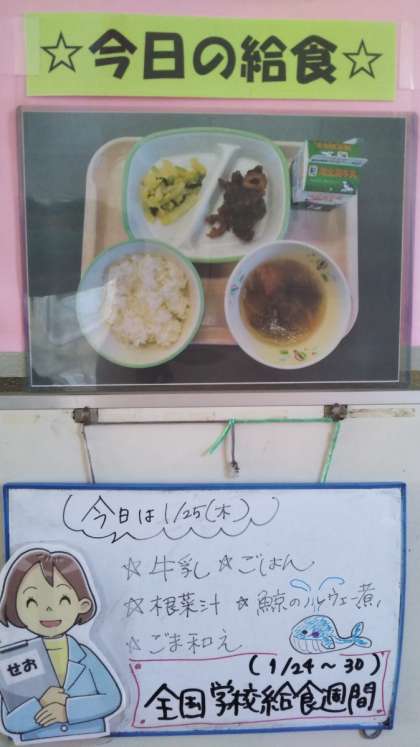 ☆今日の給食☆
今日は 1/25(木)
☆牛乳 ☆ごはん
☆根菜汁 ☆鯨のノルウェー煮
☆ごま和え
(1/24～30)
全国学校給食週間
せお